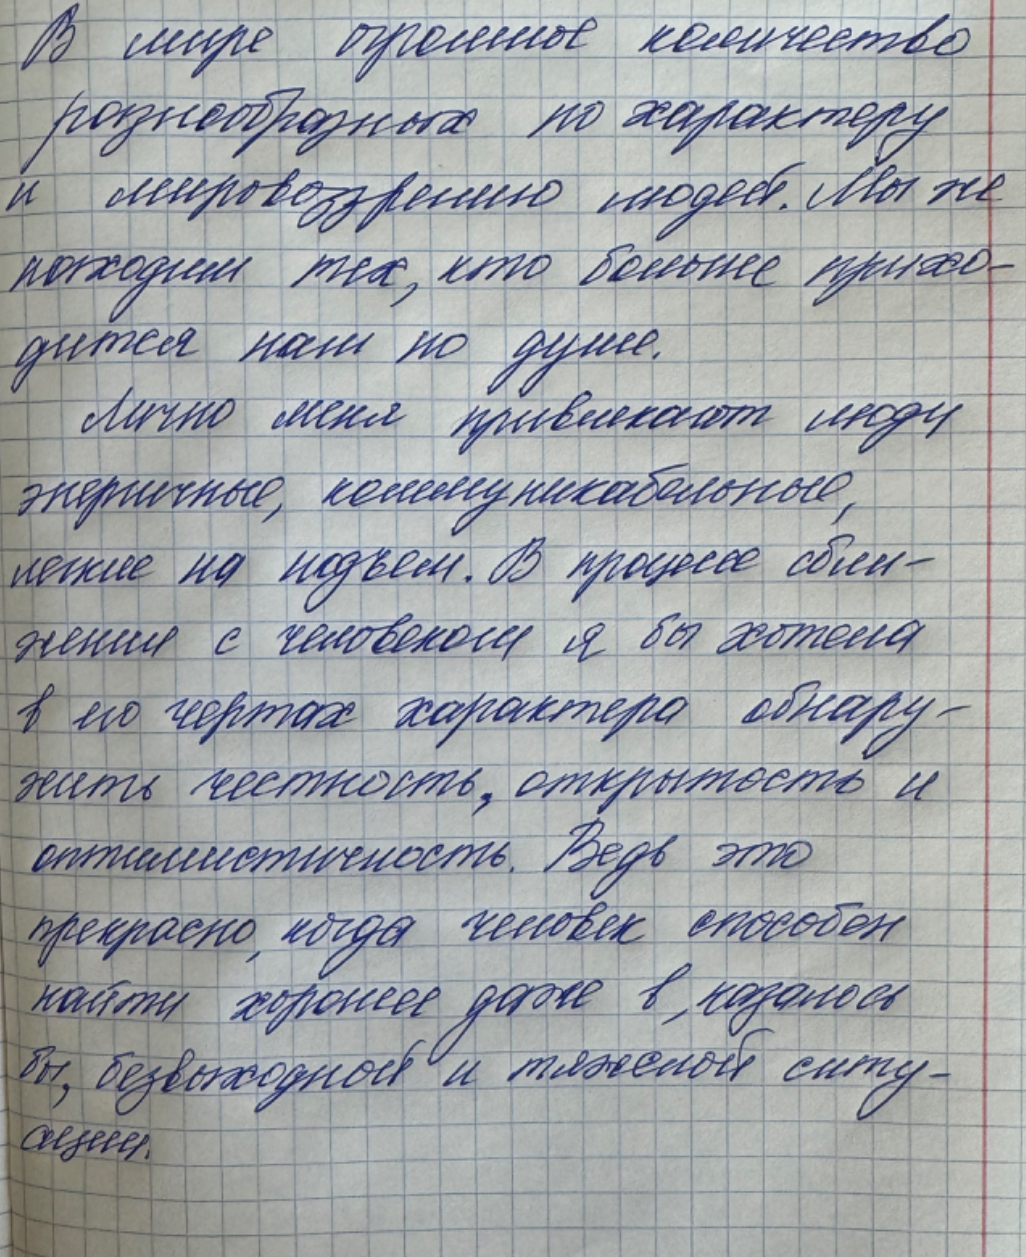 В мире огромное количество
разнообразных по характеру
и мировоззрению людей. Мы же
находим тех, кто больше прихо-
дится нам по душе.
Лично меня привлекают люди
энергичные, коммуникабельные,
легкие на подъем. В процессе сбли-
жения с человеком я бы хотела
в его чертах характера обнару-
жить честность, открытость и
оптимистичность. Ведь это
прекрасно, когда человек способен
найти хорошее даже в, казалось
бы, безвыходной и тяжелой ситу-
ации.